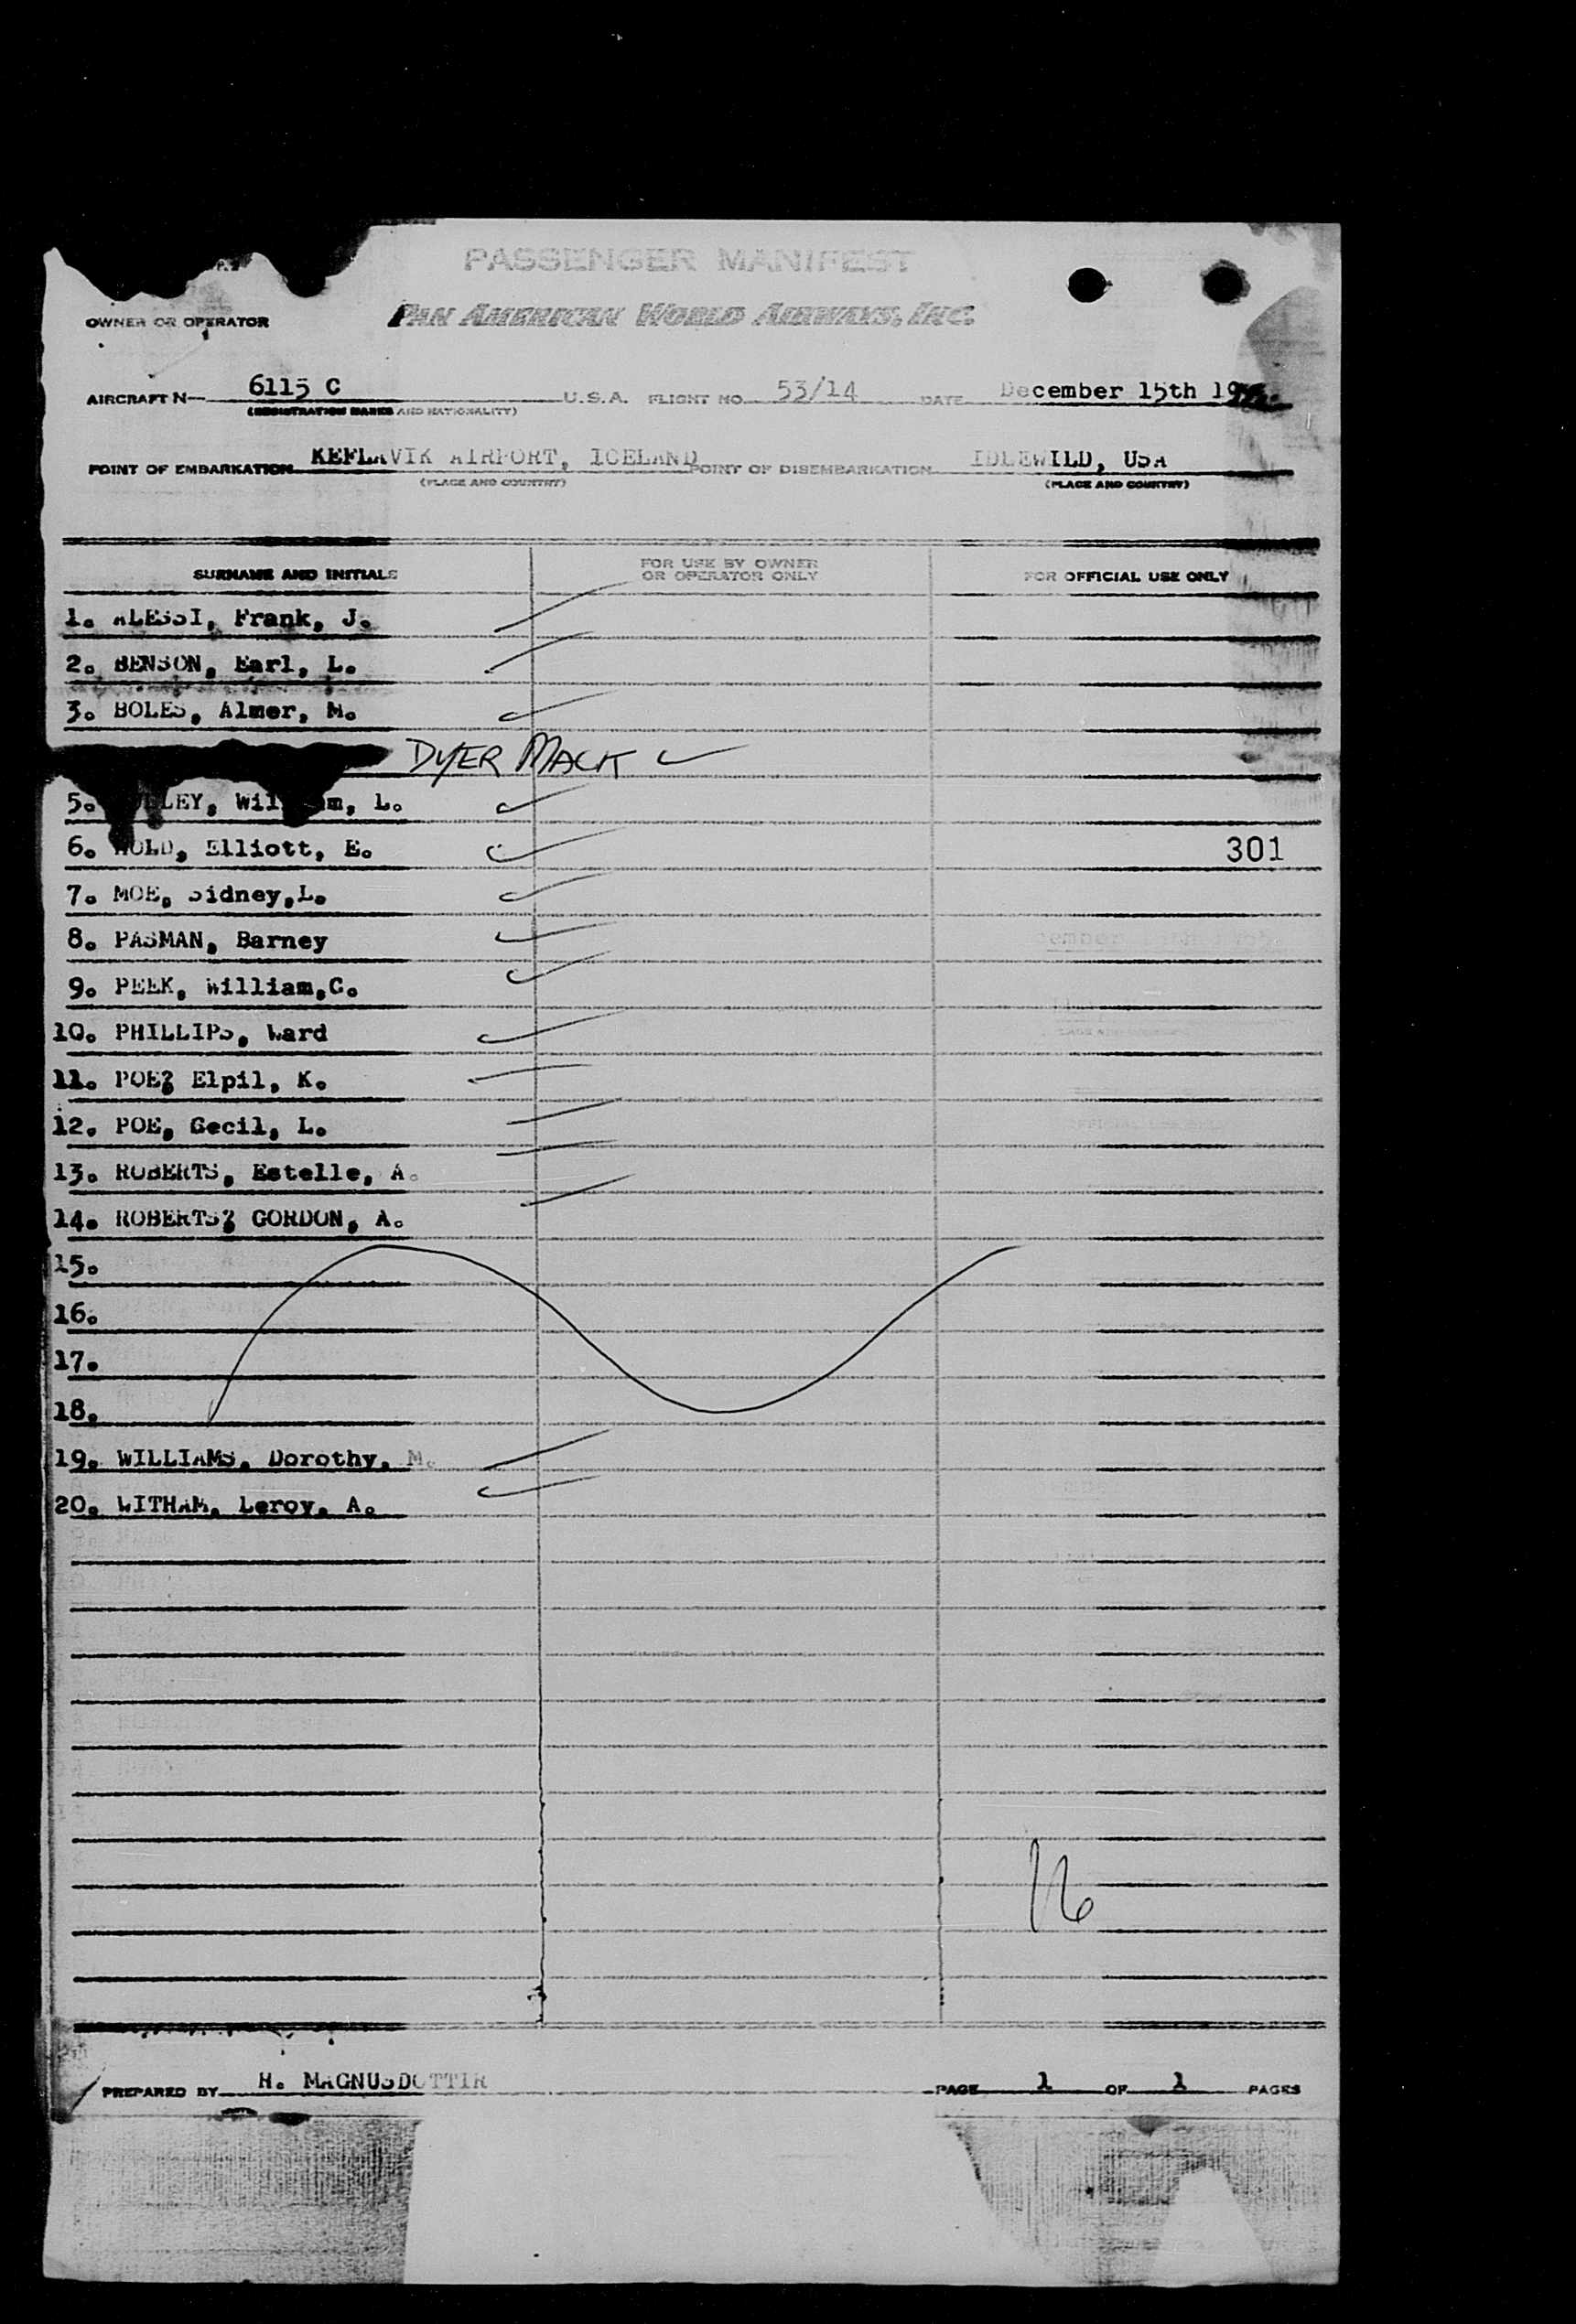 PASSENGER MANIFEST
OWNER OR OPERATOR PAN AMERICAN WORLD AIRWAYS, INC.
AIRCRAFT N— 6115 C U.S.A. FLIGHT NO. 53/14 DATE December 15th
(REGISTRATION MARKS AND NATIONALITY)
POINT OF EMBARKATION KEFLAVIK AIRPORT, ICELAND POINT OF DISEMBARKATION IDLEWILD, USA
(PLACE AND COUNTRY) (PLACE AND COUNTRY)
SURNAME AND INITIALS FOR USE BY OWNER OR OPERATOR ONLY FOR OFFICIAL USE ONLY
1. ALESSI, Frank, J.
2. BENSON, Earl, L.
3. BOLES, Almer, M.
DYER MACK
5. L.
6. Elliott, E. 301
7. MOE, Sidney,L.
8. PASMAN, Barney
9. PEEK, William,C.
10. PHILLIPS, Ward
11. POE? Elpil, K.
12. POE, Cecil, L.
13. ROBERTS, Estelle, A.
14. ROBERTS? GORDON, A.
15.
16.
17.
18.
19. WILLIAMS, Dorothy, M.
20. WITHAM, Leroy, A.
16
PREPARED BY H. MAGNUSDOTTIR PAGE 1 OF 1 PAGES